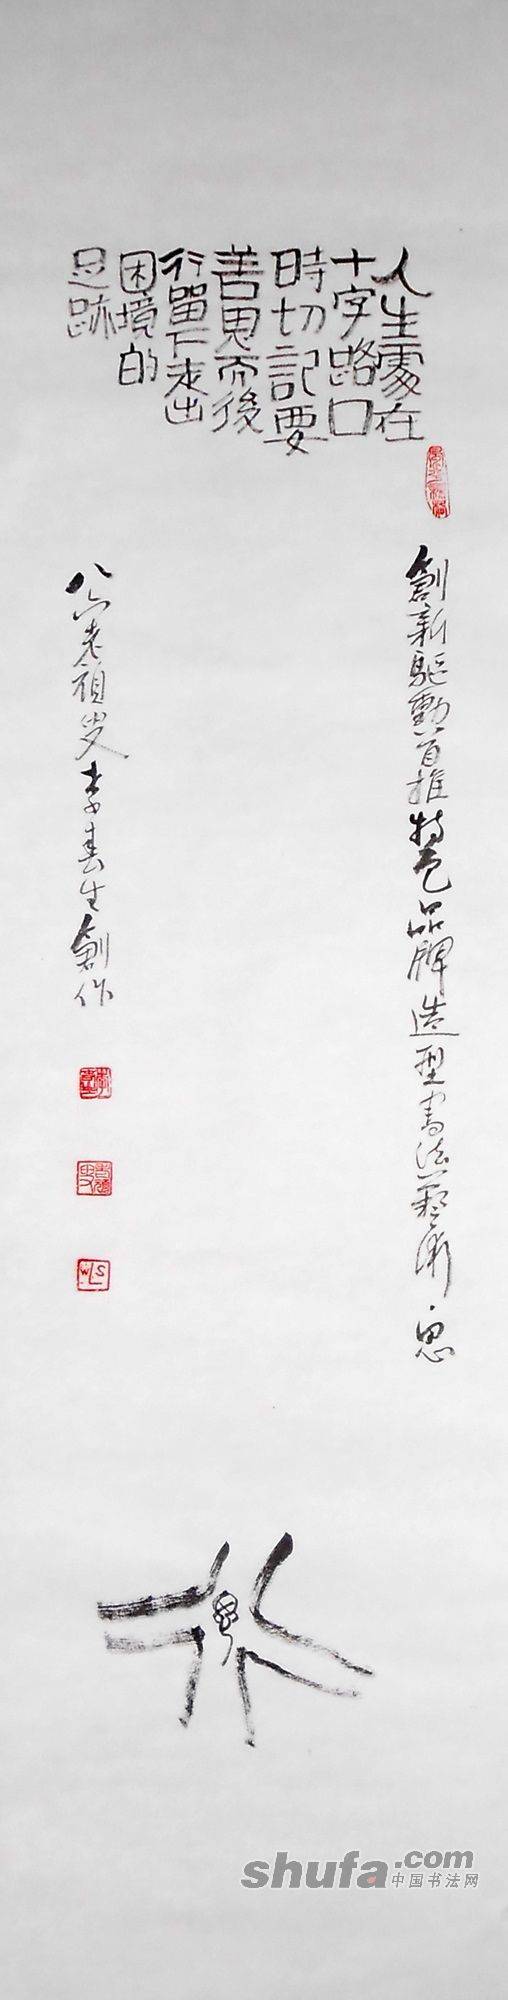 人生處在
十字路口
時切記要
善思而後
行留下走出
困境的
足跡
創新驅動首推特色品牌造型書法藝術·思
八六老頑叟李春生創作
WLS
shufa.com
中国书法网